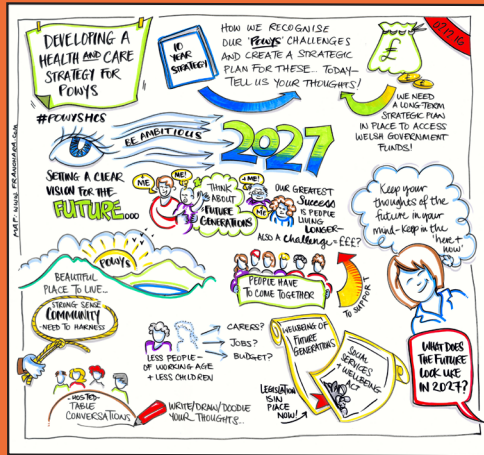 DEVELOPING A
HEALTH AND CARE
STRATEGY FOR
POWYS
#POWYSHCS
10
YEAR
STRATEGY
HOW WE RECOGNISE
OUR 'POWYS' CHALLENGES
AND CREATE A STRATEGIC
PLAN FOR THESE... TODAY-
TELL US YOUR THOUGHTS!
£
WE NEED
A LONG-TERM
STRATEGIC PLAN
IN PLACE TO ACCESS
WELSH GOVERNMENT
FUNDS!
BE AMBITIOUS
2027
SETTING A CLEAR
VISION FOR THE
FUTURE...
ME
ME!
+ME!
ME
THINK
ABOUT
'FUTURE
GENERATIONS'
OUR GREATEST
Success
IS PEOPLE
LIVING
LONGER-
ALSO A Challenge - £££?
Keep your
thoughts of the
future in your
mind-Keep in the
'here +
now'
POWYS
BEAUTIFUL
PLACE TO LIVE...
STRONG SENSE
COMMUNITY
-NEED TO HARNESS
PEOPLE HAVE
TO COME TOGETHER
TO SUPPORT
LESS PEOPLE-
OF WORKING AGE
+ LESS CHILDREN
CAREERS?
JOBS?
BUDGET?
WELLBEING OF
FUTURE
GENERATIONS
SOCIAL
SERVICES
+ WELLBEING
ACT
LEGISLATION
IS IN
PLACE
NOW!
WHAT DOES
THE FUTURE
LOOK LIKE
IN 2027?
-HOSTED-
TABLE
CONVERSATIONS
WRITE/DRAW/DOODLE
YOUR THOUGHTS...